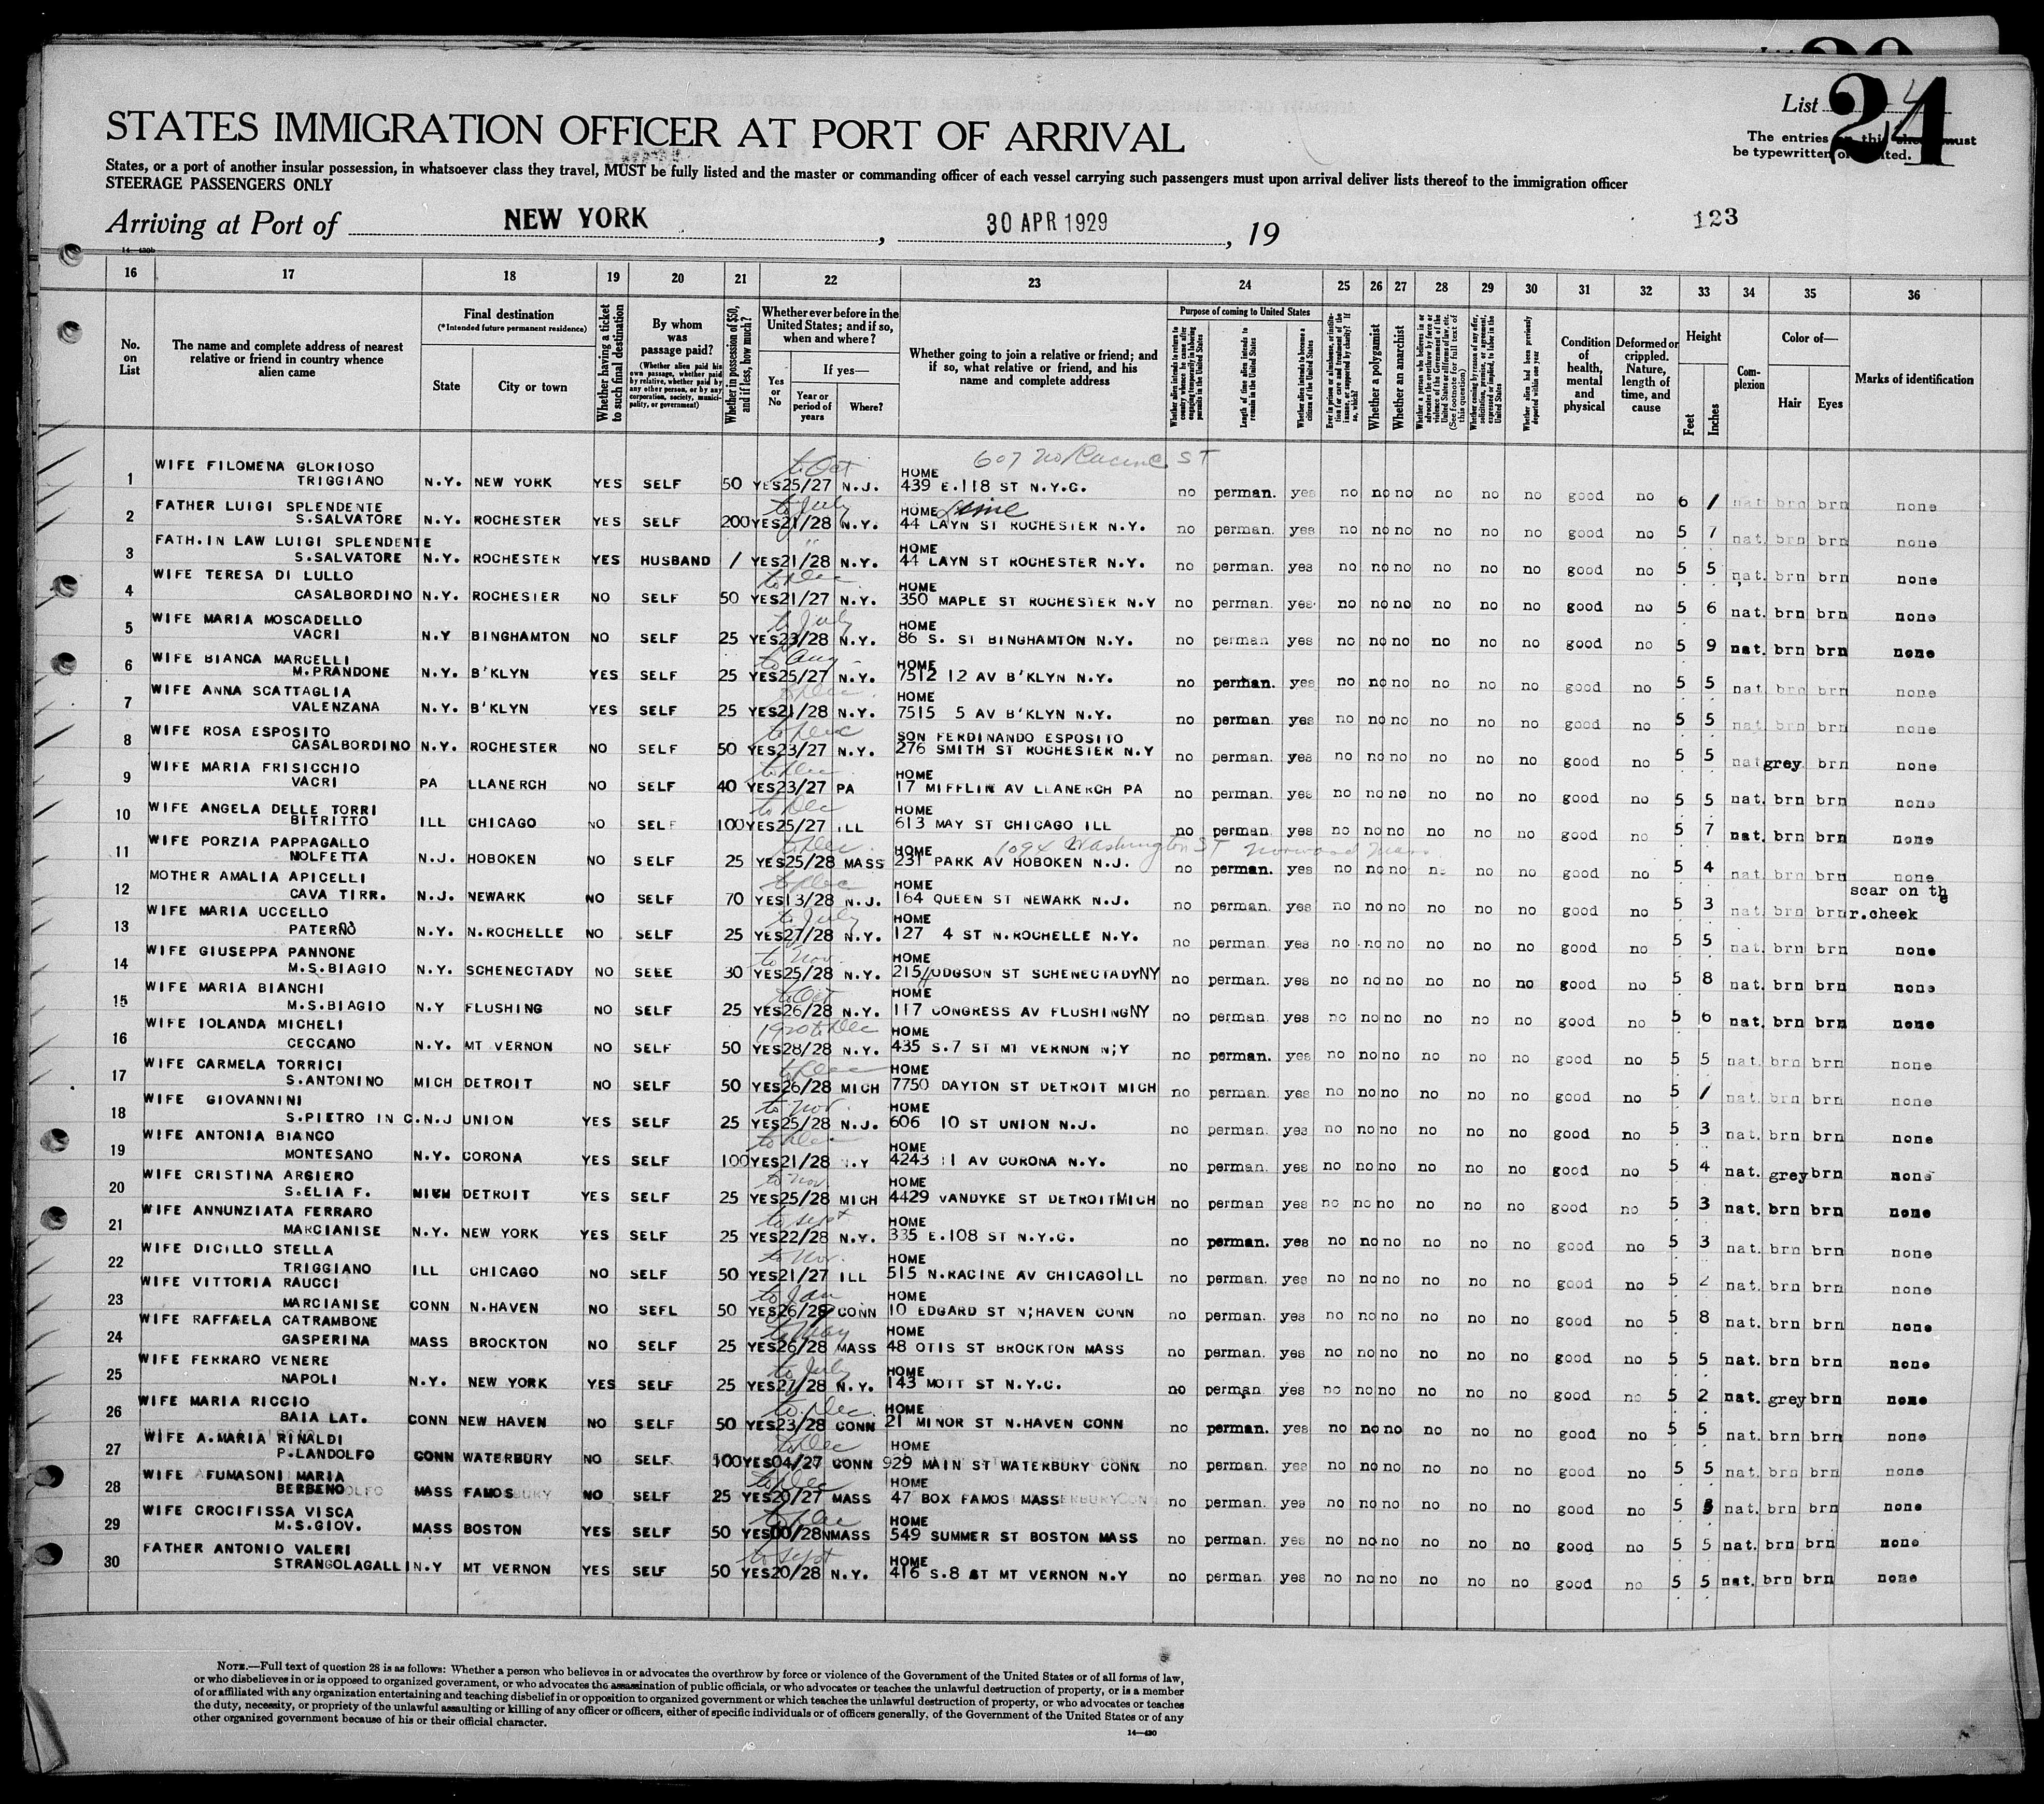 List 24
STATES IMMIGRATION OFFICER AT PORT OF ARRIVAL
The entries on this sheet must
be typewritten or printed.
States, or a port of another insular possession, in whatsoever class they travel, MUST be fully listed and the master or commanding officer of each vessel carrying such passengers must upon arrival deliver lists thereof to the immigration officer
STEERAGE PASSENGERS ONLY
Arriving at Port of NEW YORK , 30 APR 1929 , 19
123
14—430b
16 17 18 19 20 21 22 23 24 25 26 27 28 29 30 31 32 33 34 35 36
No. on List
The name and complete address of nearest relative or friend in country whence alien came
Final destination
(*Intended future permanent residence)
State City or town
Whether having a ticket to such final destination
By whom was passage paid?
(Whether alien paid his own passage, whether paid by relative, whether paid by any other person, or by any corporation, society, municipality, or government)
Whether in possession of $50, and if less, how much?
Whether ever before in the United States; and if so, when and where?
Yes or No
If yes—
Year or period of years Where?
Whether going to join a relative or friend; and if so, what relative or friend, and his name and complete address
Purpose of coming to United States
Length of time alien intends to remain in the United States
Whether alien intends to become a citizen of the United States
Whether a polygamist
Whether an anarchist
Condition of health, mental and physical
Deformed or crippled. Nature, length of time, and cause
Height
Feet Inches
Complexion
Color of—
Hair Eyes
Marks of identification
to Oct 607 No Racine ST
WIFE FILOMENA GLORIOSO HOME
1 TRIGGIANO N.Y. NEW YORK YES SELF 50 YES 25/27 N.J. 439 E.118 ST N.Y.C. no perman. yes no no no no no no good no 6 1 nat. brn brn none
to July
FATHER LUIGI SPLENDENTE HOME
2 S.SALVATORE N.Y. ROCHESTER YES SELF 200 YES 21/28 N.Y. 44 LAYN ST ROCHESTER N.Y. no perman. yes no no no no no no good no 5 7 nat. brn brn none
FATH.IN LAW LUIGI SPLENDENTE HOME
3 S.SALVATORE N.Y. ROCHESTER YES HUSBAND / YES 21/28 N.Y. 44 LAYN ST ROCHESTER N.Y. no perman. yes no no no no no no good no 5 5 nat. brn brn none
to Dec
WIFE TERESA DI LULLO HOME
4 CASALBORDINO N.Y. ROCHESTER NO SELF 50 YES 21/27 N.Y. 350 MAPLE ST ROCHESTER N.Y no perman. yes no no no no no no good no 5 6 nat. brn brn none
to July
WIFE MARIA MOSCADELLO HOME
5 VACRI N.Y BINGHAMTON NO SELF 25 YES 23/28 N.Y. 86 S. ST BINGHAMTON N.Y. no perman yes no no no no no no good no 5 9 nat. brn brn none
to Aug
WIFE BIANCA MARCELLI HOME
6 M.PRANDONE N.Y. B'KLYN YES SELF 25 YES 25/27 N.Y. 7512 12 AV B'KLYN N.Y. no perman. yes no no no no no no good no 5 5 nat. brn brn none
to Dec
WIFE ANNA SCATTAGLIA HOME
7 VALENZANA N.Y. B'KLYN YES SELF 25 YES 21/28 N.Y. 7515 5 AV B'KLYN N.Y. no perman. yes no no no no no no good no 5 5 nat. brn brn none
to Dec
WIFE ROSA ESPOSITO SON FERDINANDO ESPOSITO
8 CASALBORDINO N.Y. ROCHESTER NO SELF 50 YES 23/27 N.Y. 276 SMITH ST ROCHESTER N.Y no perman. yes no no no no no no good no 5 5 nat grey brn none
to Dec
WIFE MARIA FRISICCHIO HOME
9 VACRI PA LLANERCH NO SELF 40 YES 23/27 PA 17 MIFFLIN AV LLANERCH PA no perman. yes no no no no no no good no 5 5 nat. brn brn none
to Dec
WIFE ANGELA DELLE TORRI HOME
10 BITRITTO ILL CHICAGO NO SELF 100 YES 25/27 ILL 613 MAY ST CHICAGO ILL no perman. yes no no no no no no good no 5 7 nat. brn brn none
to Dec 1094 Washington ST Norwood Mass
WIFE PORZIA PAPPAGALLO HOME
11 MOLFETTA N.J. HOBOKEN NO SELF 25 YES 25/28 MASS 231 PARK AV HOBOKEN N.J. no perman. yes no no no no no no good no 5 4 nat. brn brn none
to Dec
MOTHER AMALIA APICELLI HOME scar on the
12 CAVA TIRR. N.J. NEWARK NO SELF 70 YES 13/28 N.J. 164 QUEEN ST NEWARK N.J. no perman. yes no no no no no no good no 5 3 nat. brn brn r.cheek
to July
WIFE MARIA UCCELLO HOME
13 PATERNO N.Y. N.ROCHELLE NO SELF 25 YES 27/28 N.Y. 127 4 ST N.ROCHELLE N.Y. no perman. yes no no no no no no good no 5 5 nat. brn brn none
to Nov.
WIFE GIUSEPPA PANNONE HOME
14 M.S.BIAGIO N.Y. SCHENECTADY NO SELE 30 YES 25/28 N.Y. 215 HODGSON ST SCHENECTADYNY no perman. yes no no no no no no good no 5 8 nat. brn brn none
to Oct
WIFE MARIA BIANCHI HOME
15 M.S.BIAGIO N.Y FLUSHING NO SELF 25 YES 26/28 N.Y. 117 CONGRESS AV FLUSHINGNY no perman. yes no no no no no no good no 5 6 nat. brn brn none
1920 to Dec
WIFE IOLANDA MICHELI HOME
16 CECCANO N.Y. MT VERNON NO SELF 50 YES 28/28 N.Y. 435 S.7 ST MT VERNON N;Y no perman. yes no no no no no no good no 5 5 nat. brn brn none
to Dec
WIFE CARMELA TORRICI HOME
17 S.ANTONINO MICH DETROIT NO SELF 50 YES 26/28 MICH 7750 DAYTON ST DETROIT MICH no perman. yes no no no no no no good no 5 1 nat. brn brn none
to Nov.
WIFE GIOVANNINI HOME
18 S.PIETRO IN C. N.J UNION YES SELF 25 YES 25/28 N.J. 606 10 ST UNION N.J. no perman. yes no no no no no no good no 5 3 nat. brn brn none
to Dec
WIFE ANTONIA BIANCO HOME
19 MONTESANO N.Y. CORONA YES SELF 100 YES 21/28 N.Y 4243 11 AV CORONA N.Y. no perman. yes no no no no no no good no 5 4 nat. grey brn none
to Nov.
WIFE CRISTINA ARGIERO HOME
20 S.ELIA F. MICH DETROIT YES SELF 25 YES 25/28 MICH 4429 VANDYKE ST DETROITMICH no perman yes no no no no no no good no 5 3 nat. brn brn none
to Sept
WIFE ANNUNZIATA FERRARO HOME
21 MARCIANISE N.Y. NEW YORK YES SELF 25 YES 22/28 N.Y. 335 E.108 ST N.Y.C. no perman. yes no no no no no no good no 5 3 nat. brn brn none
to Nov.
WIFE DICILLO STELLA HOME
22 TRIGGIANO ILL CHICAGO NO SELF 50 YES 21/27 ILL 515 N.RACINE AV CHICAGOILL no perman. yes no no no no no no good no 5 2 nat. brn brn none
to Jan
WIFE VITTORIA RAUCCI HOME
23 MARCIANISE CONN N.HAVEN NO SEFL 50 YES 26/29 CONN 10 EDGARD ST N;HAVEN CONN no perman. yes no no no no no no good no 5 8 nat. brn brn none
to May
WIFE RAFFAELA CATRAMBONE HOME
24 GASPERINA MASS BROCKTON NO SELF 25 YES 26/28 MASS 48 OTIS ST BROCKTON MASS no perman. yes no no no no no no good no 5 5 nat. brn brn none
to July
WIFE FERRARO VENERE HOME
25 NAPOLI N.Y. NEW YORK YES SELF 25 YES 27/28 N.Y. 143 MOTT ST N.Y.C. no perman yes no no no no no no good no 5 2 nat. grey brn none
to Dec.
WIFE MARIA RICCIO HOME
26 BAIA LAT. CONN NEW HAVEN NO SELF 50 YES 23/28 CONN 21 MINOR ST N.HAVEN CONN no perman. yes no no no no no no good no 5 5 nat. brn brn none
to Dec
WIFE A.MARIA RINALDI HOME
27 P.LANDOLFO CONN WATERBURY NO SELF 100 YES 04/27 CONN 929 MAIN ST WATERBURY CONN no perman. yes no no no no no no good no 5 5 nat. brn brn none
to Dec
WIFE FUMASONI MARIA HOME
28 BERBENO MASS FAMOS NO SELF 25 YES 20/27 MASS 47 BOX FAMOS MASS no perman. yes no no no no no no good no 5 8 nat. brn brn none
to Dec
WIFE CROCIFISSA VISCA HOME
29 M.S.GIOV. MASS BOSTON YES SELF 50 YES 00/28 MASS 549 SUMMER ST BOSTON MASS no perman. yes no no no no no no good no 5 5 nat. brn brn none
to Sept
FATHER ANTONIO VALERI HOME
30 STRANGOLAGALLI N.Y MT VERNON YES SELF 50 YES 20/28 N.Y. 416 S.8 ST MT VERNON N.Y no perman yes no no no no no no good no 5 5 nat. brn brn none
NOTE.—Full text of question 28 is as follows: Whether a person who believes in or advocates the overthrow by force or violence of the Government of the United States or of all forms of law,
or who disbelieves in or is opposed to organized government, or who advocates the assassination of public officials, or who advocates or teaches the unlawful destruction of property, or is a member
of or affiliated with any organization entertaining and teaching disbelief in or opposition to organized government or which teaches the unlawful destruction of property, or who advocates or teaches
the duty, necessity, or propriety of the unlawful assaulting or killing of any officer or officers, either of specific individuals or of officers generally, of the Government of the United States or of any
other organized government because of his or their official character.
14—430